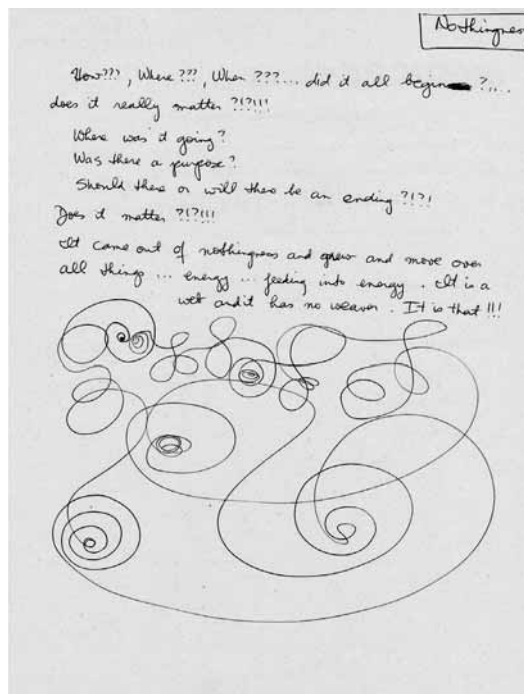 Nothingness
How???, Where ???, When ???... did it all begin ?....
does it really matter ?!?!!!
Where was it going?
Was there a purpose?
Should there or will there be an ending ?!?!
Does it matter ?!?!!!
It came out of nothingness and grew and move over
all things ... energy ... feeding into energy. It is a
web and it has no weaver. It is that !!!